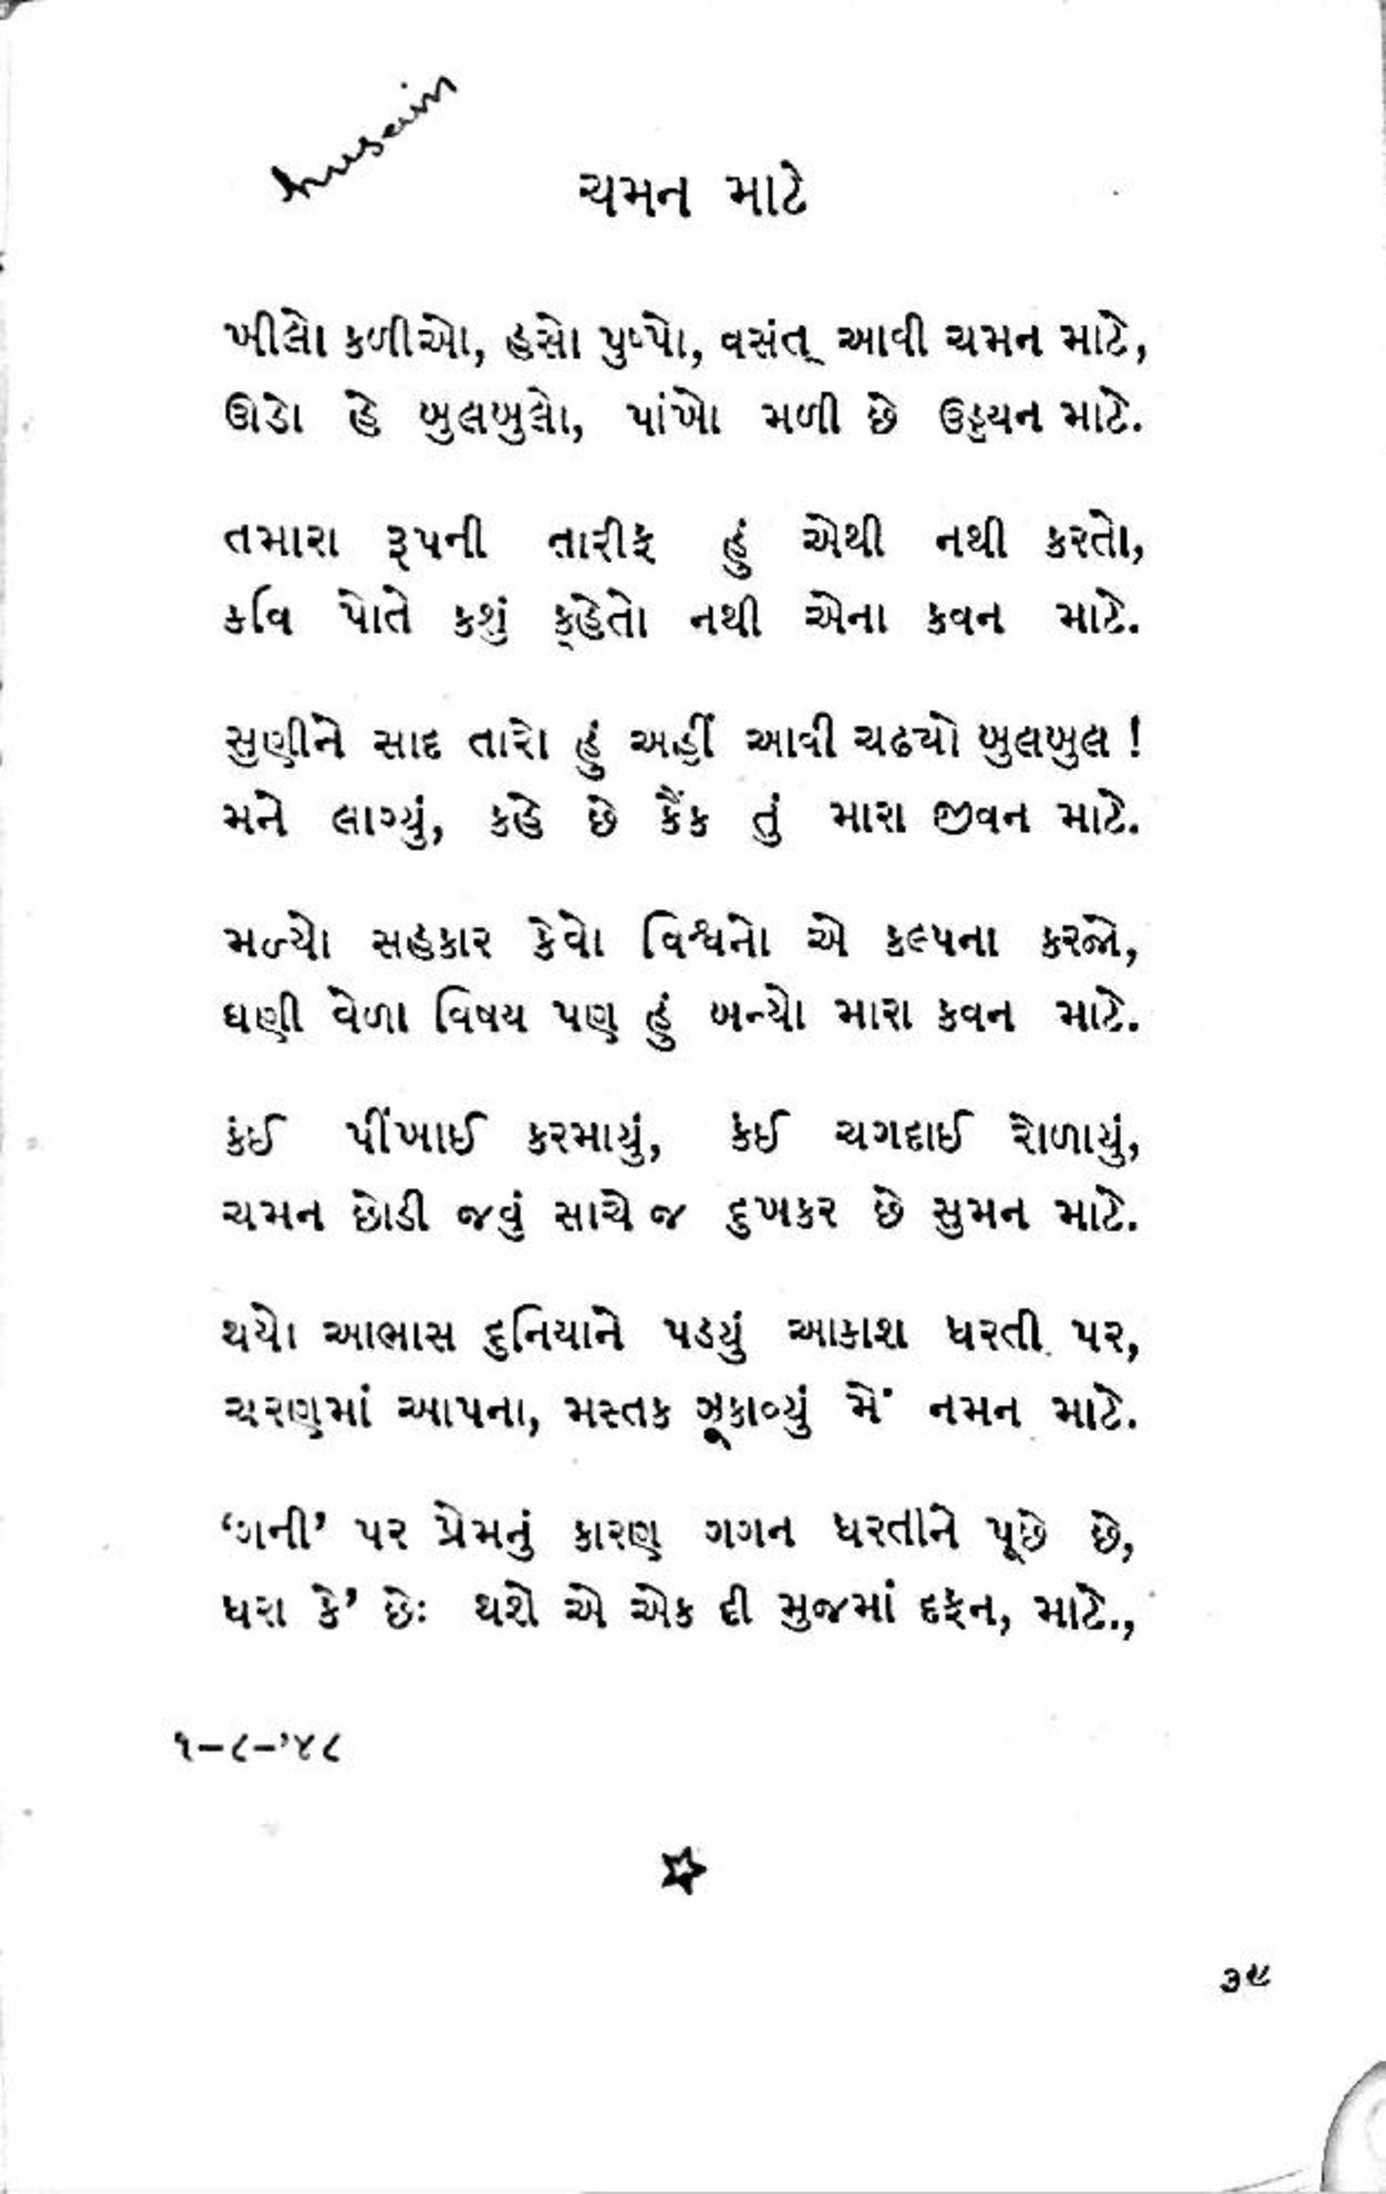 Husain
ચમન માટે
ખીલો કળીઓ, હસો પુષ્પો, વસંત્ આવી ચમન માટે,
ઊડો હે બુલબુલો, પાંખો મળી છે ઉડ્ડયન માટે.
તમારા રૂપની તારીફ હું એથી નથી કરતો,
કવિ પોતે કશું ક્હેતો નથી એના કવન માટે.
સુણીને સાદ તારો હું અહીં આવી ચઢયો બુલબુલ !
મને લાગ્યું, કહે છે કૈંક તું મારા જીવન માટે.
મળ્યો સહકાર કેવો વિશ્વનો એ કલ્પના કરજો,
ઘણી વેળા વિષય પણ હું બન્યો મારા કવન માટે.
કંઈ પીંખાઈ કરમાયું, કંઈ ચગદાઈ રોળાયું,
ચમન છોડી જવું સાચે જ દુખકર છે સુમન માટે.
થયો આભાસ દુનિયાને પડયું આકાશ ધરતી પર,
ચરણમાં આપના, મસ્તક ઝૂકાવ્યું મેં નમન માટે.
‘ગની’ પર પ્રેમનું કારણ ગગન ધરતીને પૂછે છે,
ધરા કે’ છેઃ થશે એ એક દી મુજમાં દફન, માટે.,
૧-૮-’૪૮
૩૯